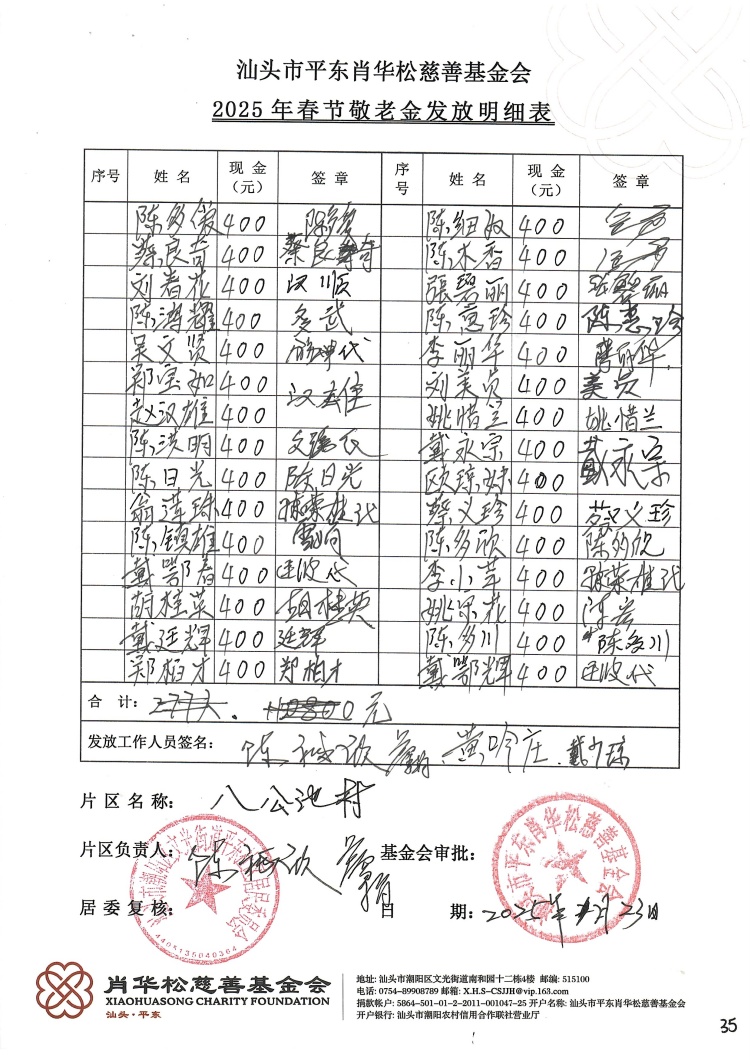 汕头市平东肖华松慈善基金会
2025年春节敬老金发放明细表
序号 姓名 现金（元） 签章 序号 姓名 现金（元） 签章
陈多俊 400 陈细叔 400
蔡良奇 400 蔡良奇 陈木香 400
刘春花 400 汉顺 張碧丽 400 张碧丽
陈鸿耀 400 多武 陈惠珍 400 陈惠珍
吴文贤 400 李丽华 400 李丽华
郑宝如 400 汉雄 刘美员 400 美员
赵汉雄 400 姚惜兰 400 姚惜兰
陈洪明 400 戴永宗 400 戴永宗
陈日光 400 陈日光 欧琼妹 400
翁莲珠 400 陈荣桂代 蔡义珍 400 蔡义珍
陈镇雄 400 陈多欣 400
戴鄂春 400 廷波代 李小苹 400 陈荣桂代
胡桂英 400 胡桂英 姚果花 400
戴廷辉 400 廷辉 陈多川 400 陈多川
郑柏才 400 郑柏才 戴鄂辉 400 廷波代
合计： 元
发放工作人员签名： 黄吟庄
片区名称： 八公池村
片区负责人： 基金会审批：
居委复核： 日期：2025年1月23日
汕头市平东肖华松慈善基金会
4405135040364
肖华松慈善基金会
XIAOHUASONG CHARITY FOUNDATION
汕头·平东
地址: 汕头市潮阳区文光街道南和园十二栋4楼 邮编: 515100
电话: 0754-89908789 邮箱: X.H.S-CSJJH@vip.163.com
捐款帐户: 5864-501-01-2-2011-001047-25 开户名称: 汕头市平东肖华松慈善基金会
开户银行: 汕头市潮阳农村信用合作联社营业厅
35